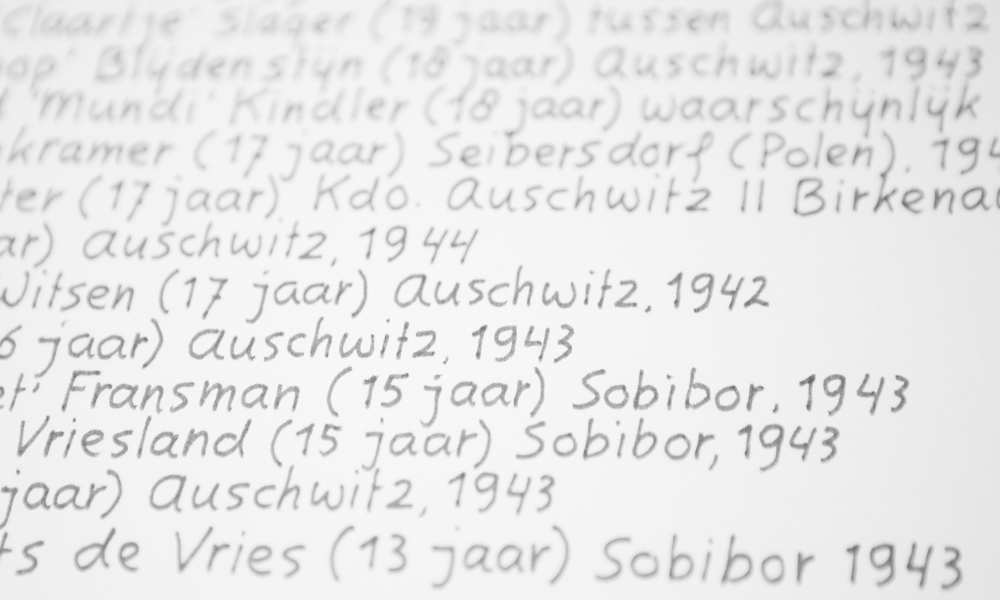 'Claartje' Slager (19 jaar) tussen Auschwitz
Blijdenstijn (18 jaar) Auschwitz, 1943
'Mundi' Kindler (18 jaar) waarschijnlijk
kramer (17 jaar) Seibersdorf (Polen), 194
ter (17 jaar) Kdo. Auschwitz II Birkenau
ar) Auschwitz, 1944
Witsen (17 jaar) Auschwitz, 1942
6 jaar) Auschwitz, 1943
et' Fransman (15 jaar) Sobibor, 1943
Vriesland (15 jaar) Sobibor, 1943
jaar) Auschwitz, 1943
ts de Vries (13 jaar) Sobibor 1943